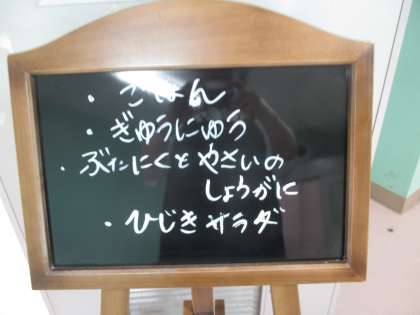 ・ごはん
・ぎゅうにゅう
・ぶたにくとやさいの
しょうがに
・ひじきサラダ